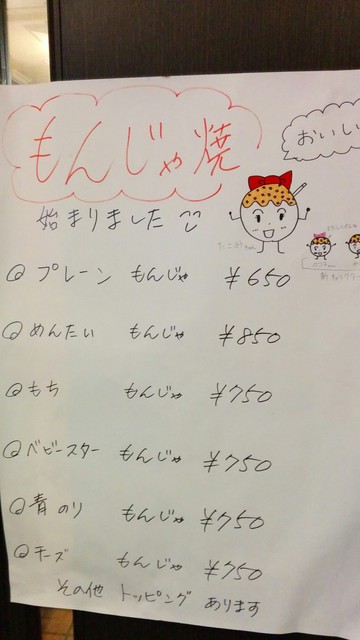 もんじゃ焼
おいしい
始まりました
プレーン もんじゃ ¥650
めんたい もんじゃ ¥850
もち もんじゃ ¥750
ベビースター もんじゃ ¥750
青のり もんじゃ ¥750
チーズ もんじゃ ¥750
その他 トッピング あります